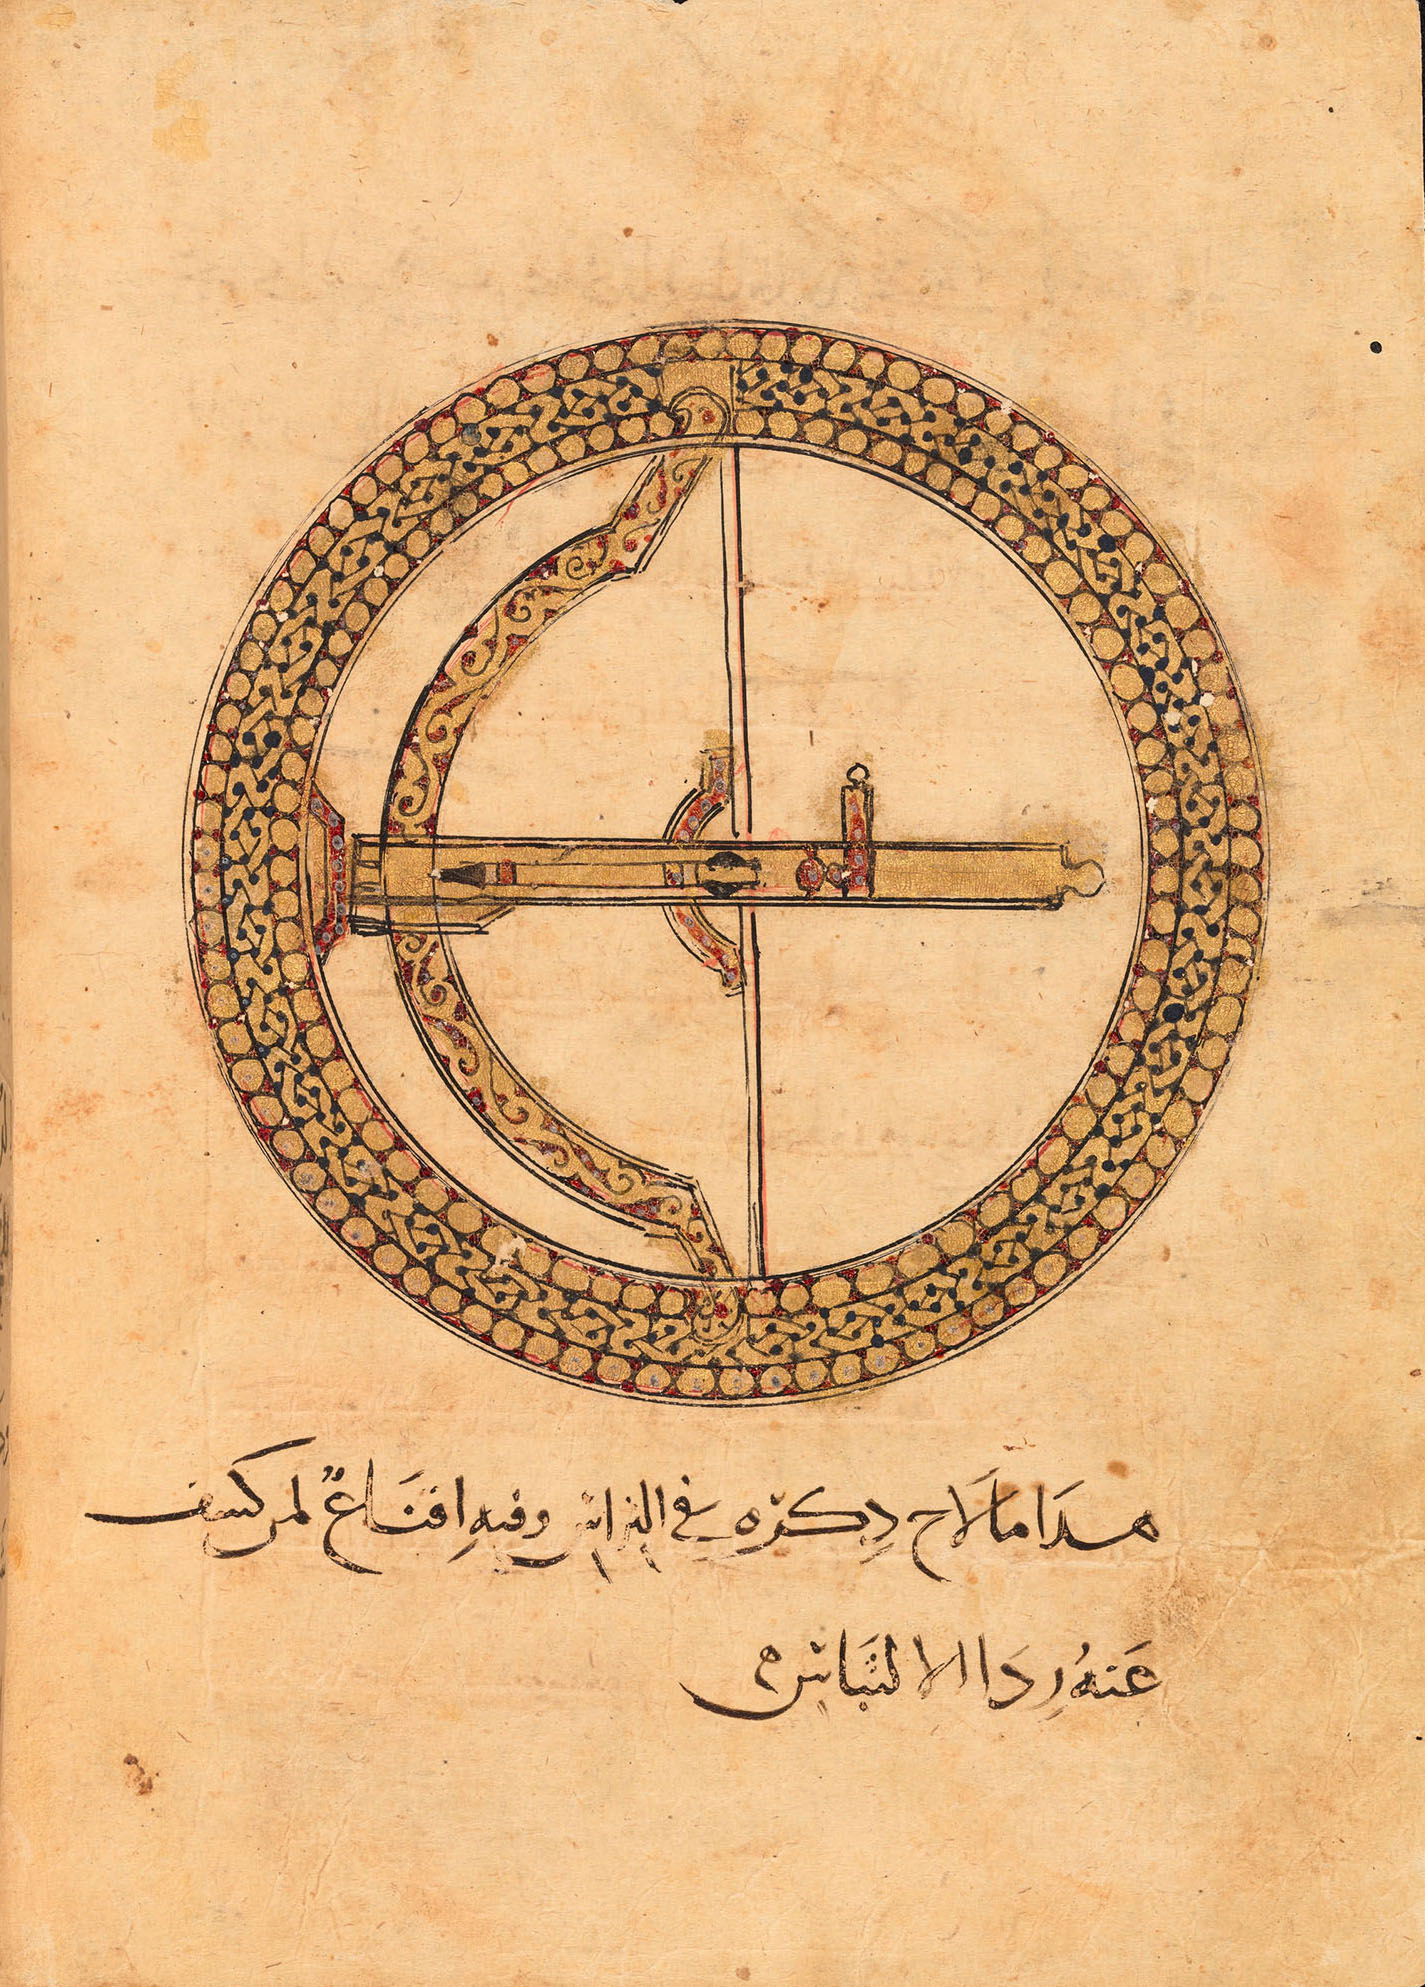 هذا ما لاح ذكره في التراس وفيه اقناعٌ لمن كشف
عنهُ ردا الالتباس